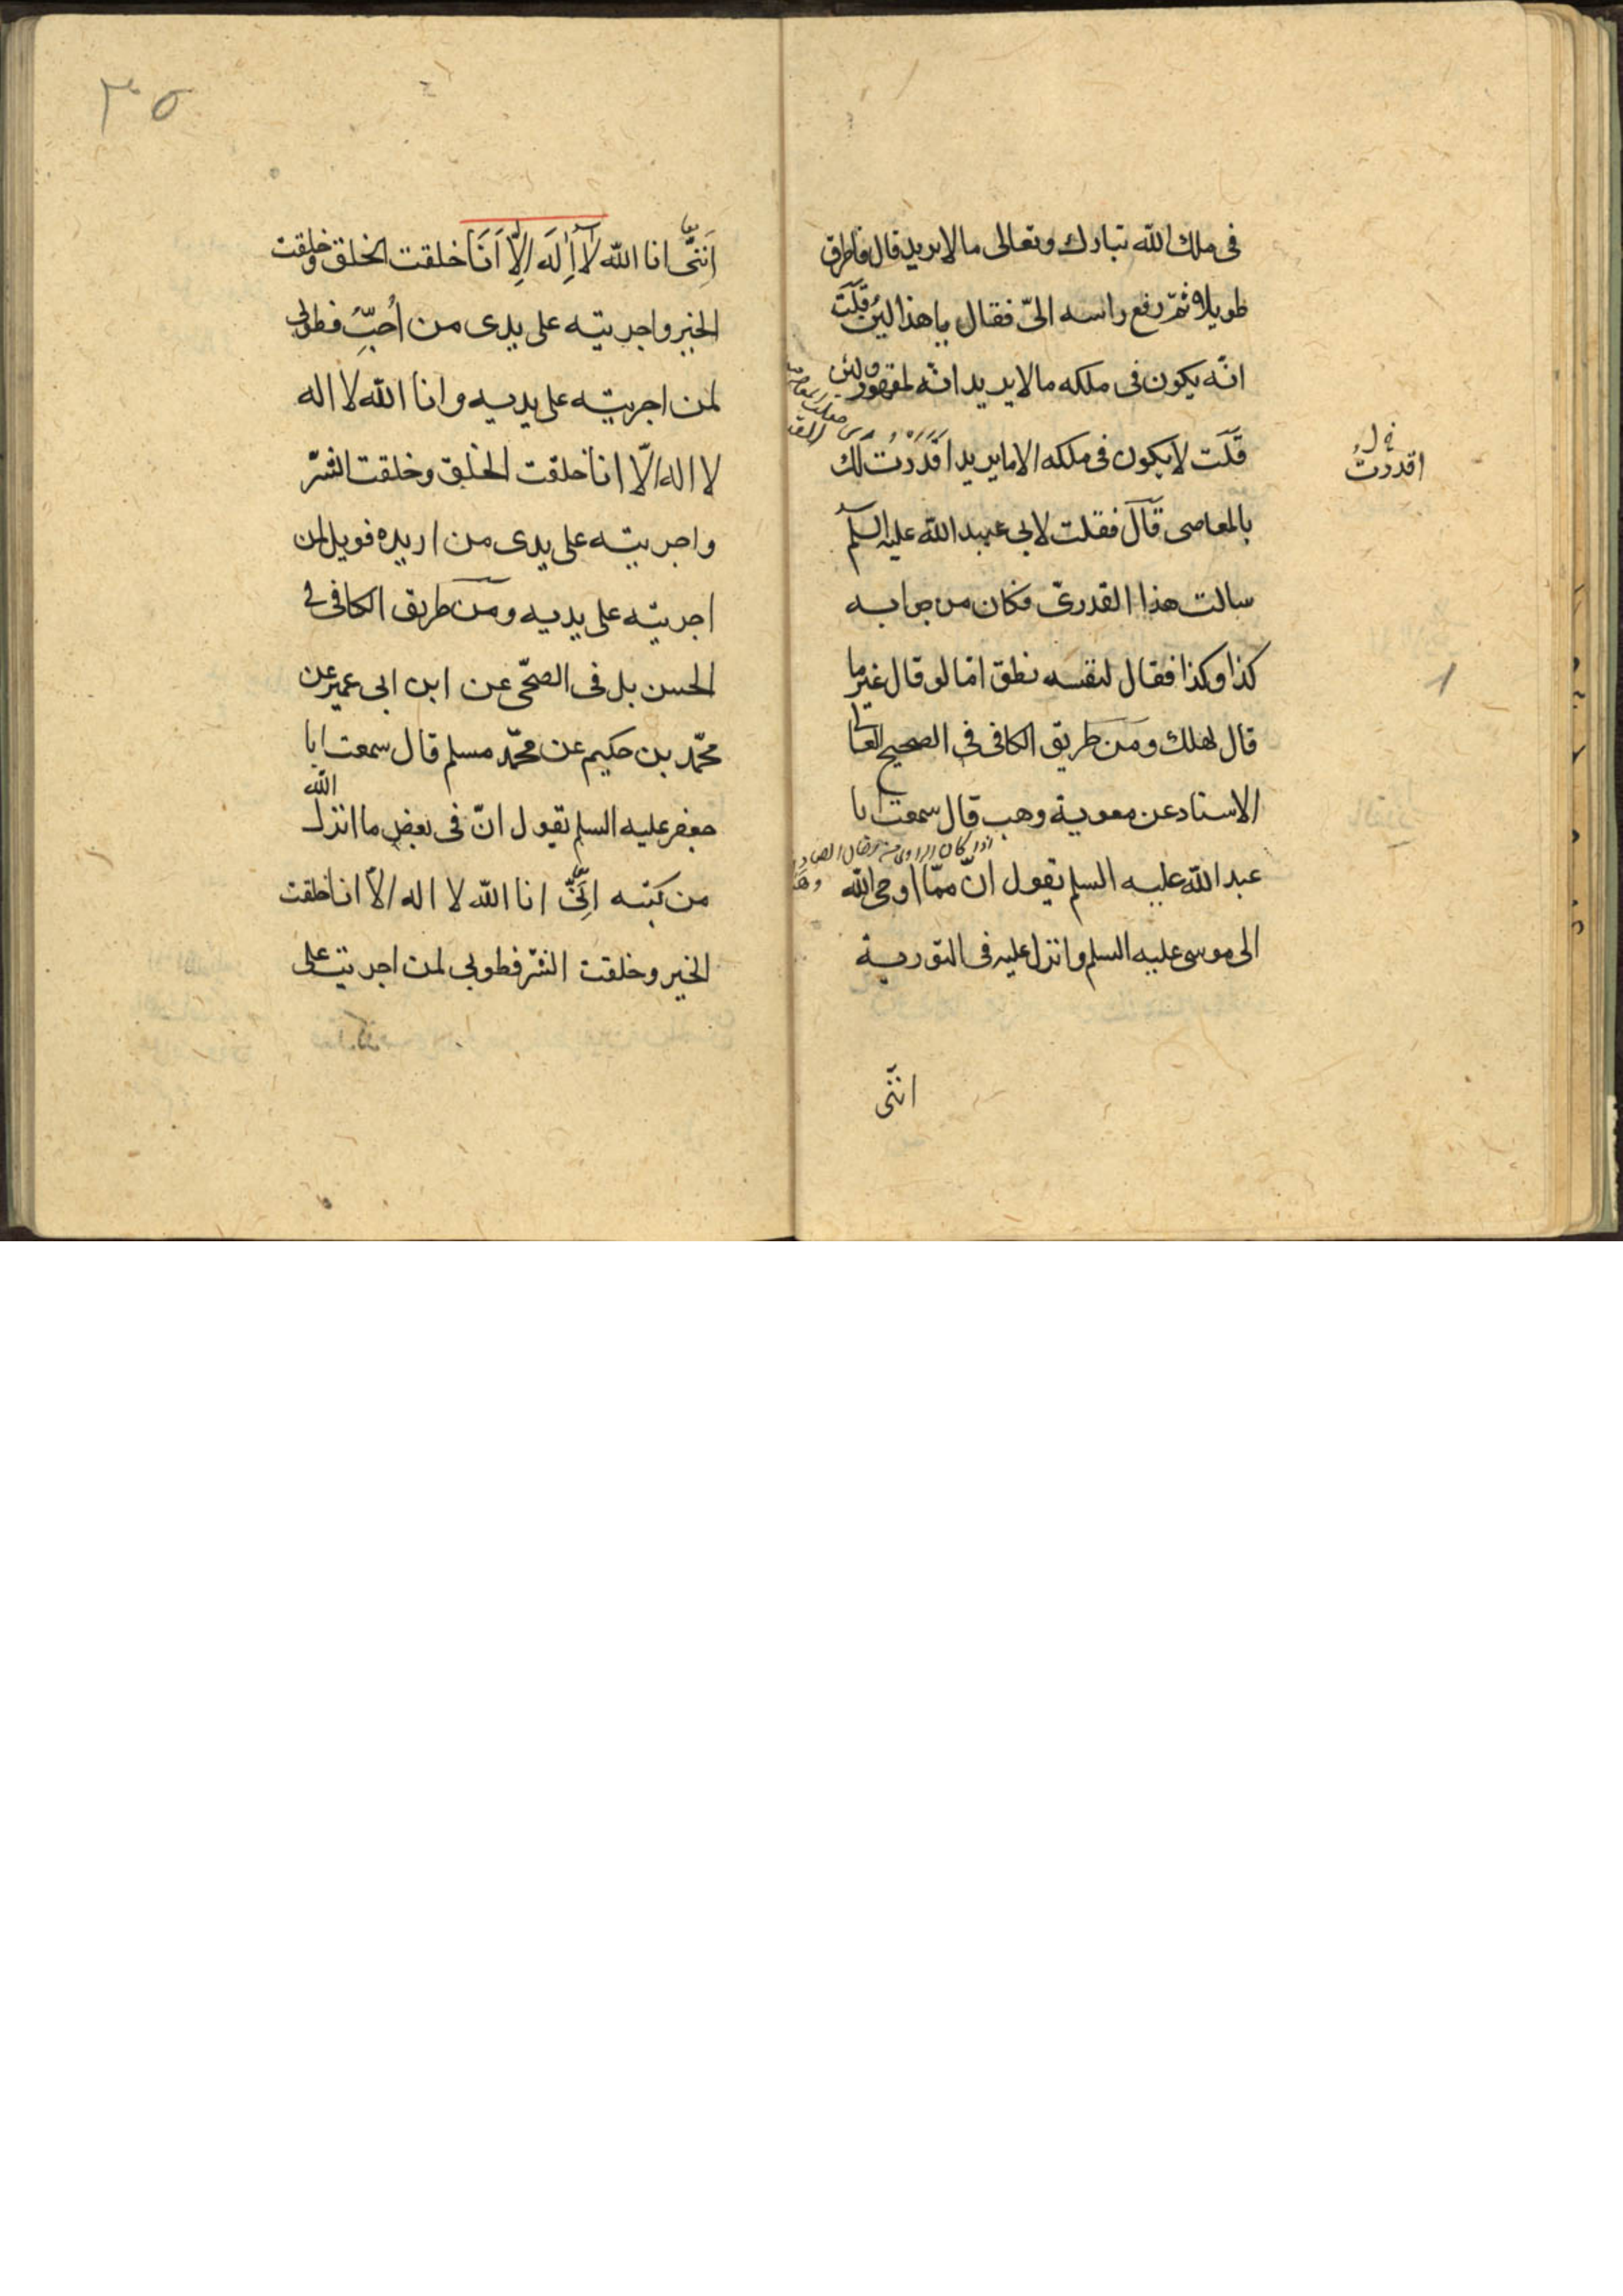 فى ملك الله تبارك وتعالى ما لا يريد قال فاطرق
طويلا ثمّ رفع راسه الىّ فقال يا هذا لئن قلت
انّه يكون فى ملكه ما لا يريد انّه لمقهور ولئن
قلت لا يكون فى ملكه الا ما يريد اقدرت لك
بالمعاصى قال فقلت لابى عبد الله عليه السلم
سالت هذا القدرىّ فكان من جوابه
كذا وكذا فقال لنفسه نظق اما لو قال غير ما
قال لهلك ومن طريق الكافى فى الصحيح العالى
الاسناد عن معوية وهب قال سمعت ابا
عبد الله عليه السلم يقول انّ ممّا اوحى الله
الى موسى عليه السلم وانزل عليه فى التورية
انّنى
اقدرت
٣٥
اَنِنّى انا الله لَا اِلَه اِلّا اَنَا خلقت الخلق وخلقت
الخير واجريته على يدى من اُحِبّ فطوبى
لمن اجريته على يديه وانا الله لا اله
لا اله الّا انا خلقت الخلق وخلقت الشرّ
واجريته على يدى من اريده فويل لمن
اجريته على يديه ومن طريق الكافى فى
الحسن بل فى الصحّى عن ابن ابى عمير عن
محمّد بن حكيم عن محمّد مسلم قال سمعت ابا
جعفر عليه السلم يقول انّ فى بعض ما انزل الله
من كتبه انّنى انا الله لا اله الّا انا خلقت
الخير وخلقت الشرّ فطوبى لمن اجريت على